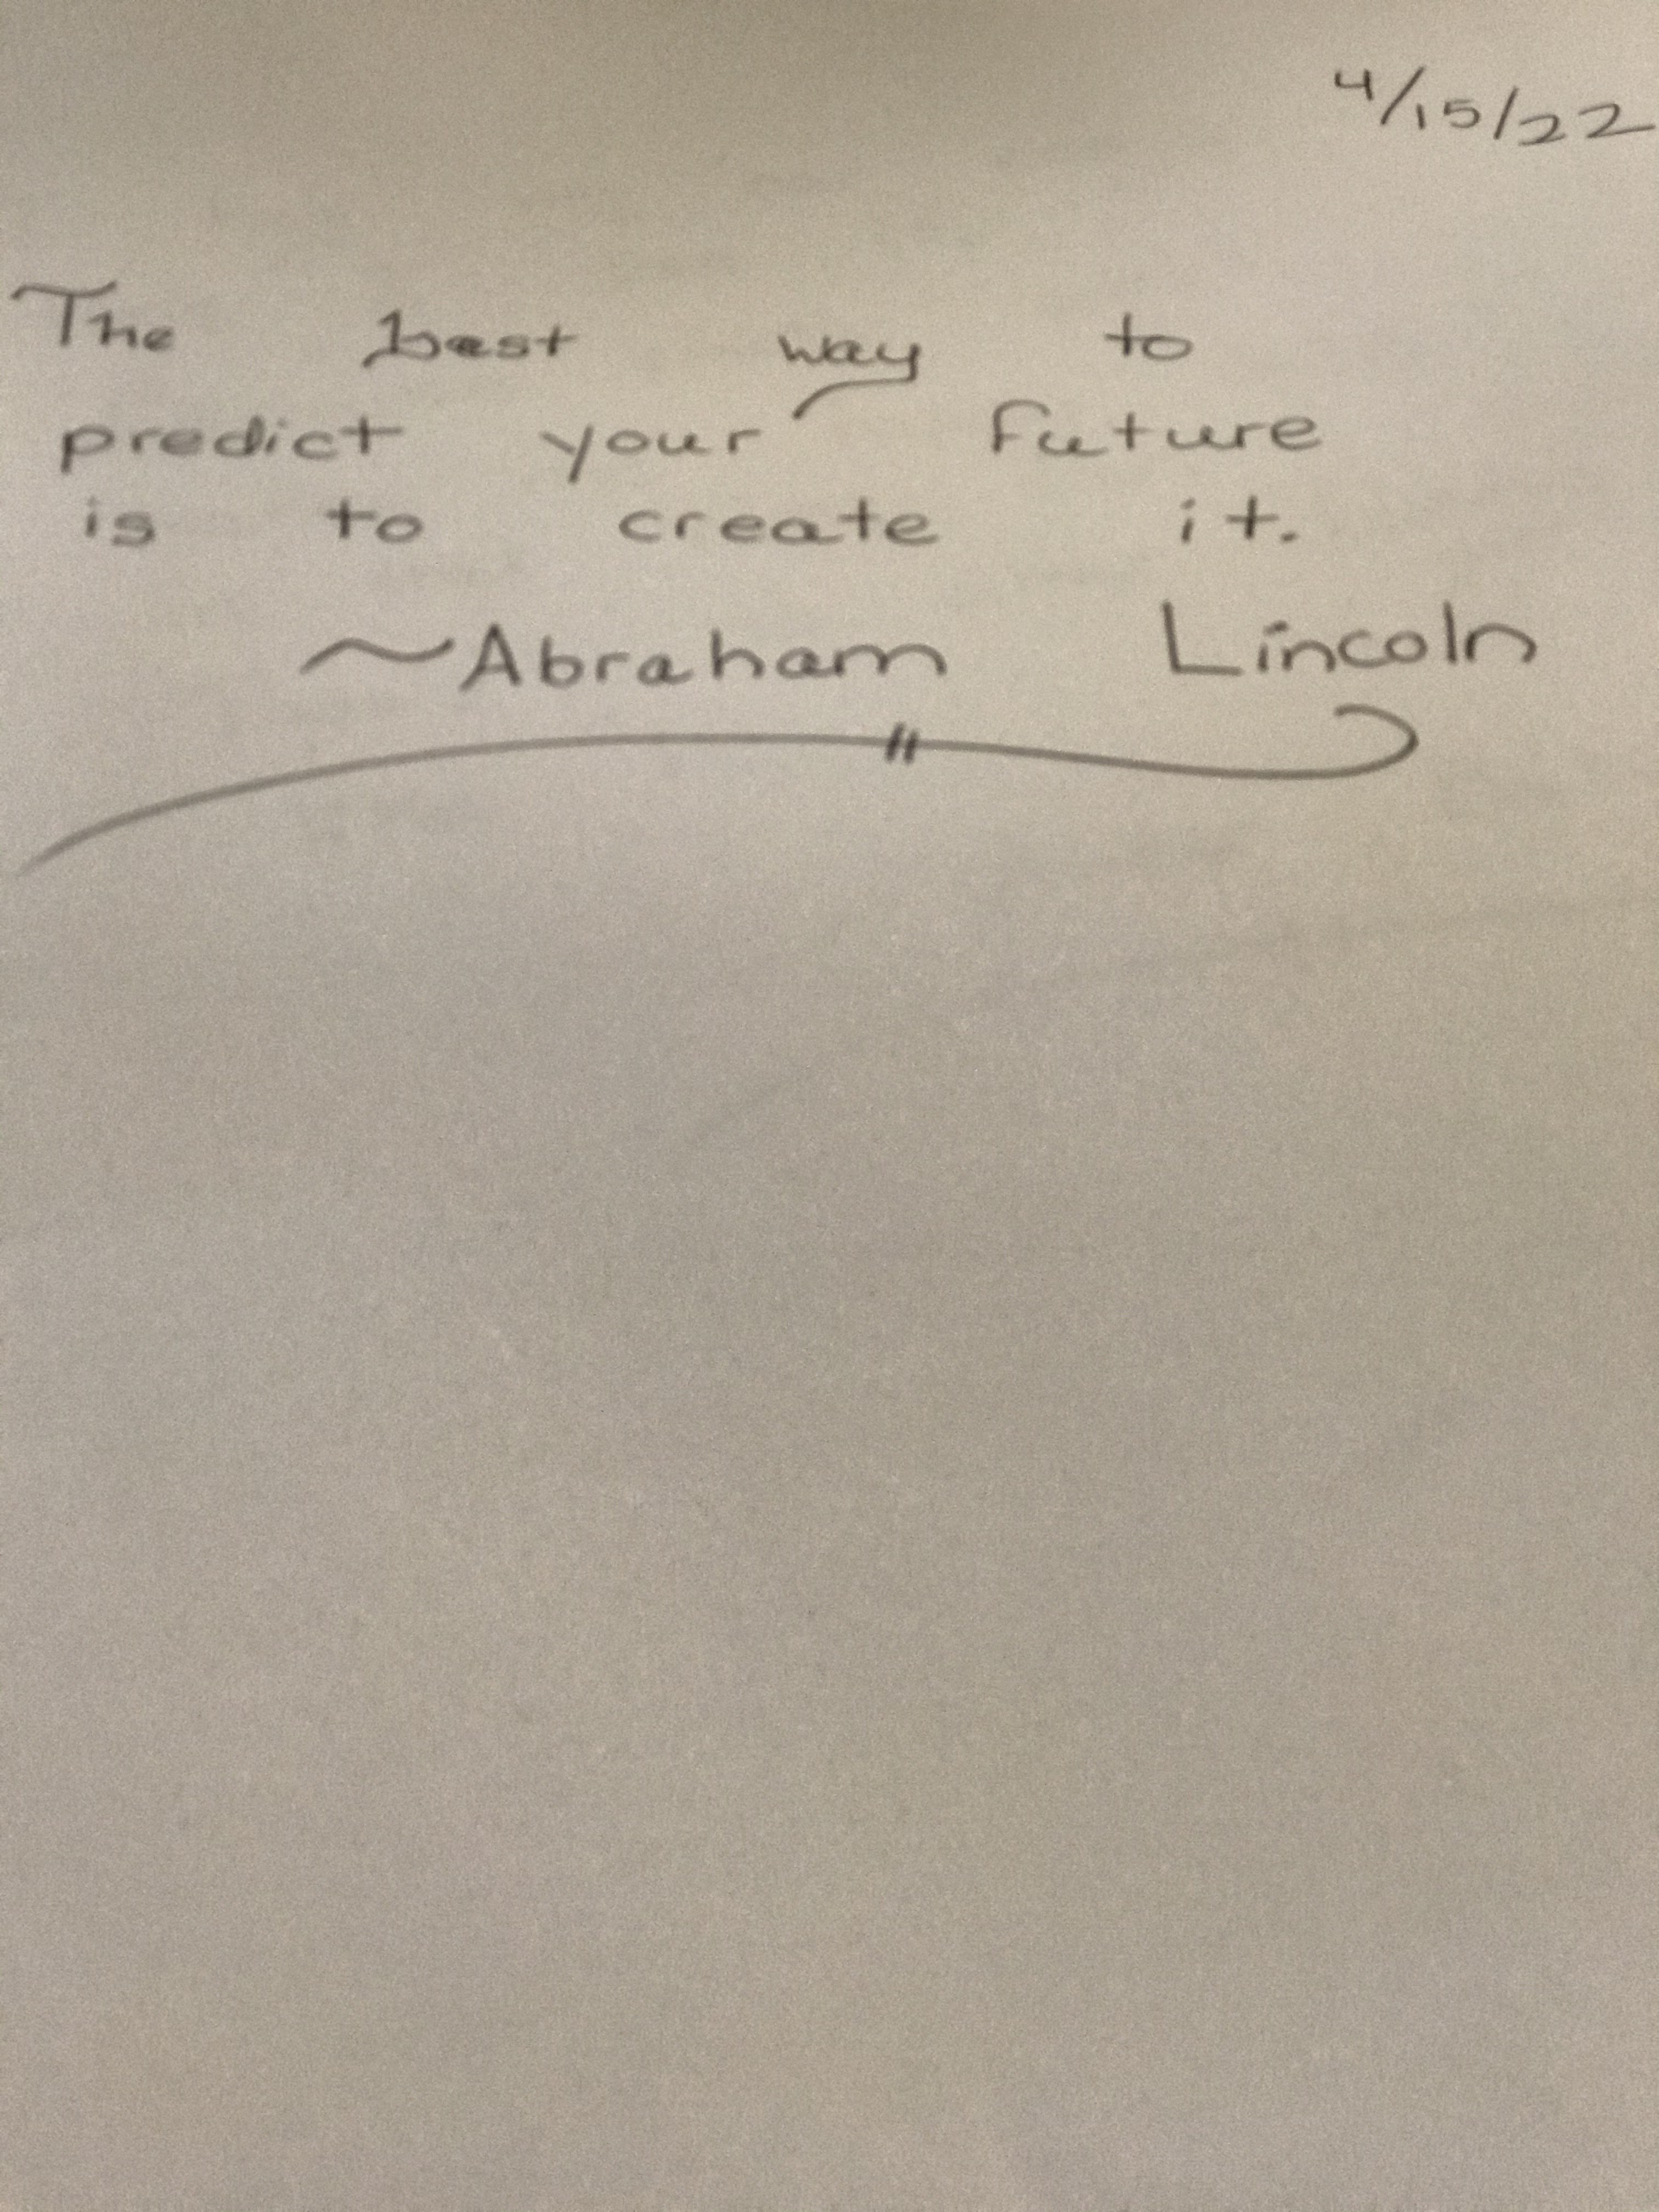 4/15/22
The best way to
predict your future
is to create it.
~Abraham Lincoln